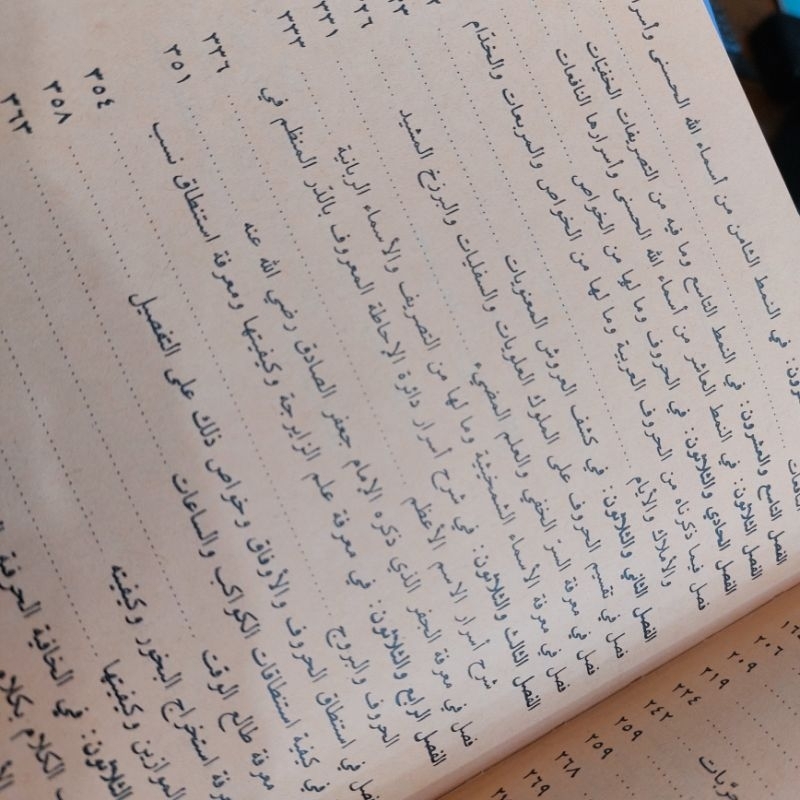 في النمط الثامن من أسماء الله الحسنى
الفصل التاسع والعشرون: في النمط التاسع وما فيه من التصريفات الخفيّات
الفصل الثلاثون: في النمط العاشر من أسماء الله الحسنى وأسرارها النافعات
الفصل الحادي والثلاثون: في الحروف وما لها من الخواص
فصل فيما ذكرناه من الحروف العربية وما لها من الخواص والمربعات والخدّام
والأملاك والأيام
الفصل الثاني والثلاثون: في كشف العروش المعنويات
فصل في تقسيم الحروف على الملوك العلويات والسفليات والبرزخ المشيد
فصل في معرفة السرّ الخفي والعلم المضيء
فصل في معرفة الأسماء الشمخيثية وما لها من التصريف والأسماء الربانية
الفصل الثالث والثلاثون: في شرح أسرار دائرة الإحاطة المعروف بالدّر المنظم في
شرح أسرار الاسم الأعظم
٣٣٣
فصل في معرفة الجفر الذي ذكره الإمام جعفر الصادق رضي الله عنه
٣٣٦
الفصل الرابع والثلاثون: في معرفة علم الزايرجة وكيفيتها ومعرفة استنطاق نسب
الحروف والبروج
٣٥١
فصل في استنطاق الحروف والأوفاق وخواص ذلك على التفصيل
٣٥٤
في كيفية استنطاقات الكواكب والساعات
٣٥٨
معرفة طالع الوقت
٣٦٣
استخراج البخور وكيفيته
الموازين وكيفيتها
الثلاثون: في الخافية الحرفية
الكلام بكلام
٢٠٦
٢٠٩
٢١٩
٢٢٤
٢٤٢
٢٥٩
٢٥٩
٢٦٨
٢٦٩